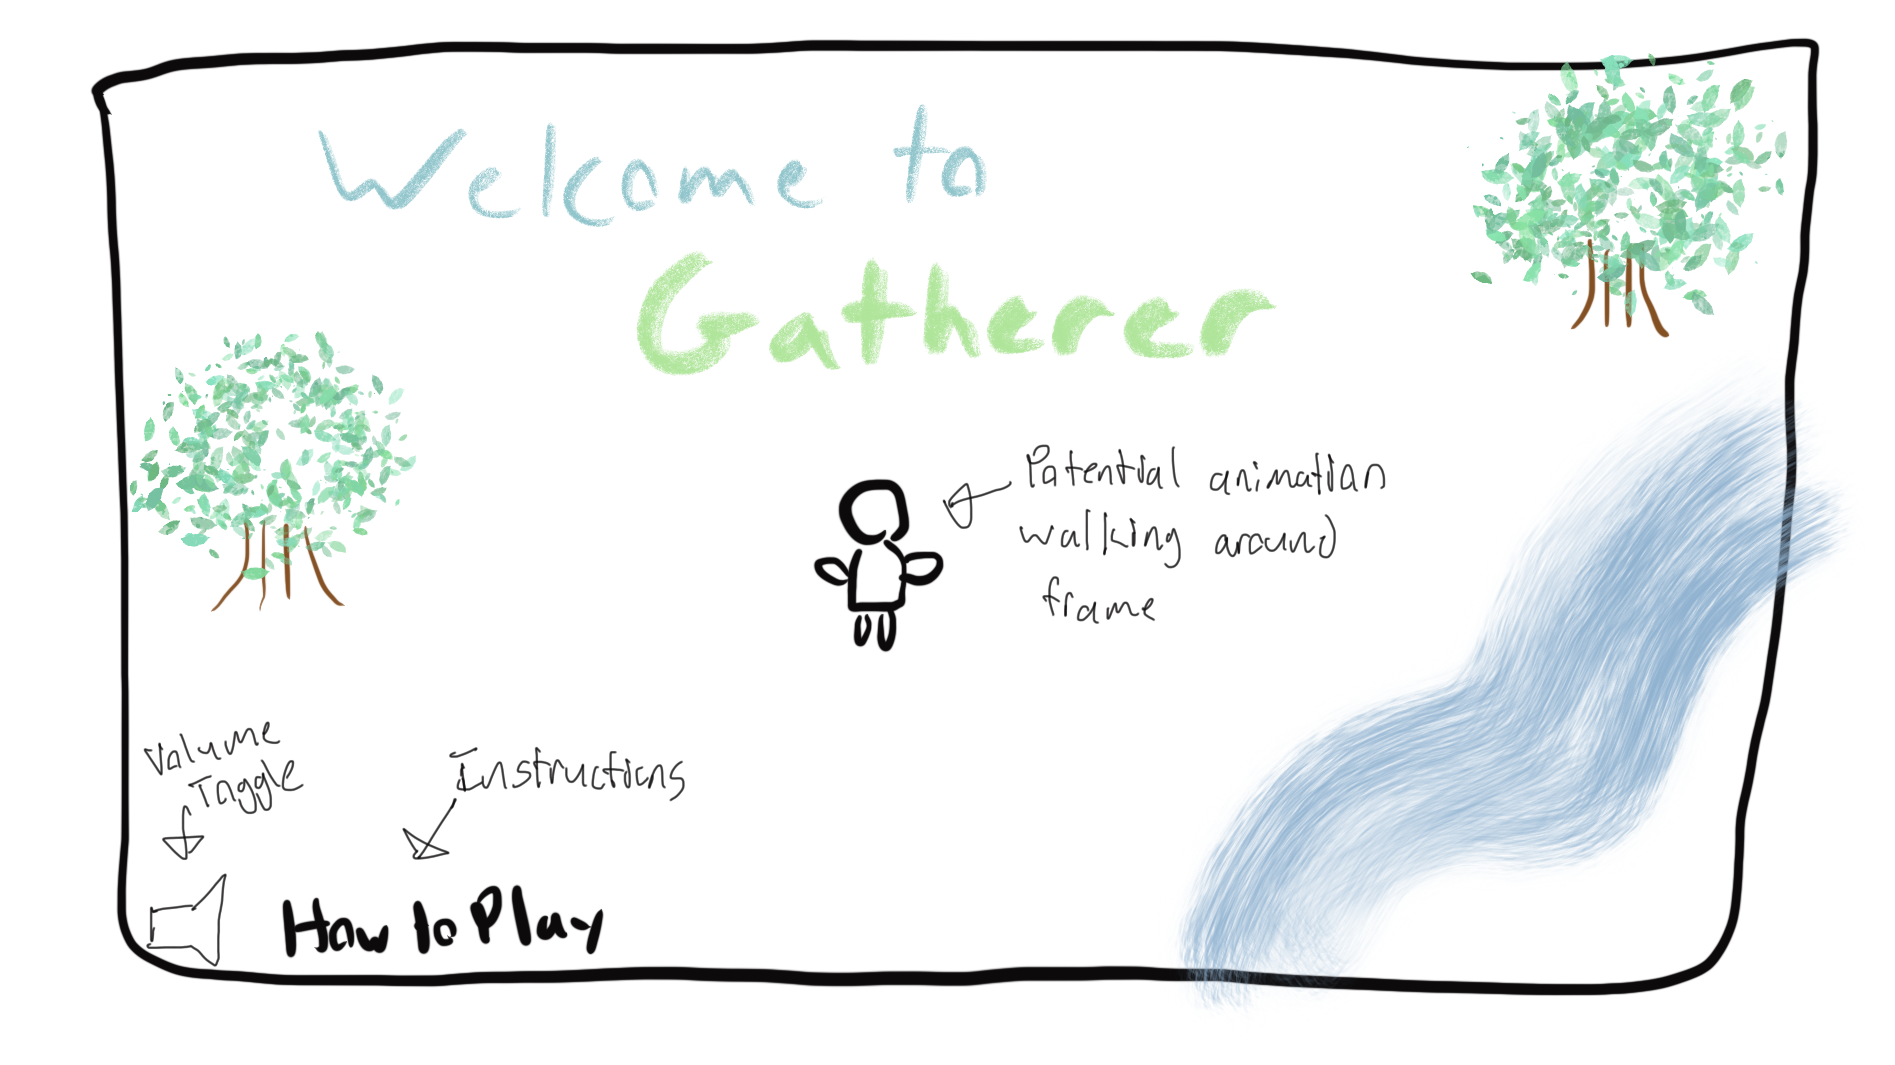 Welcome to
Gatherer
Potential animation
walking around
frame
Volume
Toggle
Instructions
How to Play